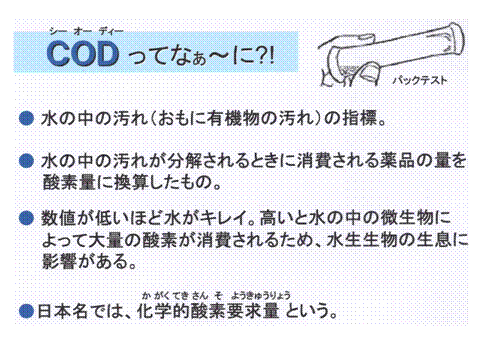 シー オー ディー
COD ってなぁ～に?!
パックテスト
● 水の中の汚れ(おもに有機物の汚れ)の指標。
● 水の中の汚れが分解されるときに消費される薬品の量を
酸素量に換算したもの。
● 数値が低いほど水がキレイ。高いと水の中の微生物に
よって大量の酸素が消費されるため、水生生物の生息に
影響がある。
か がくてき さん そ ようきゅうりょう
●日本名では、化学的酸素要求量 という。